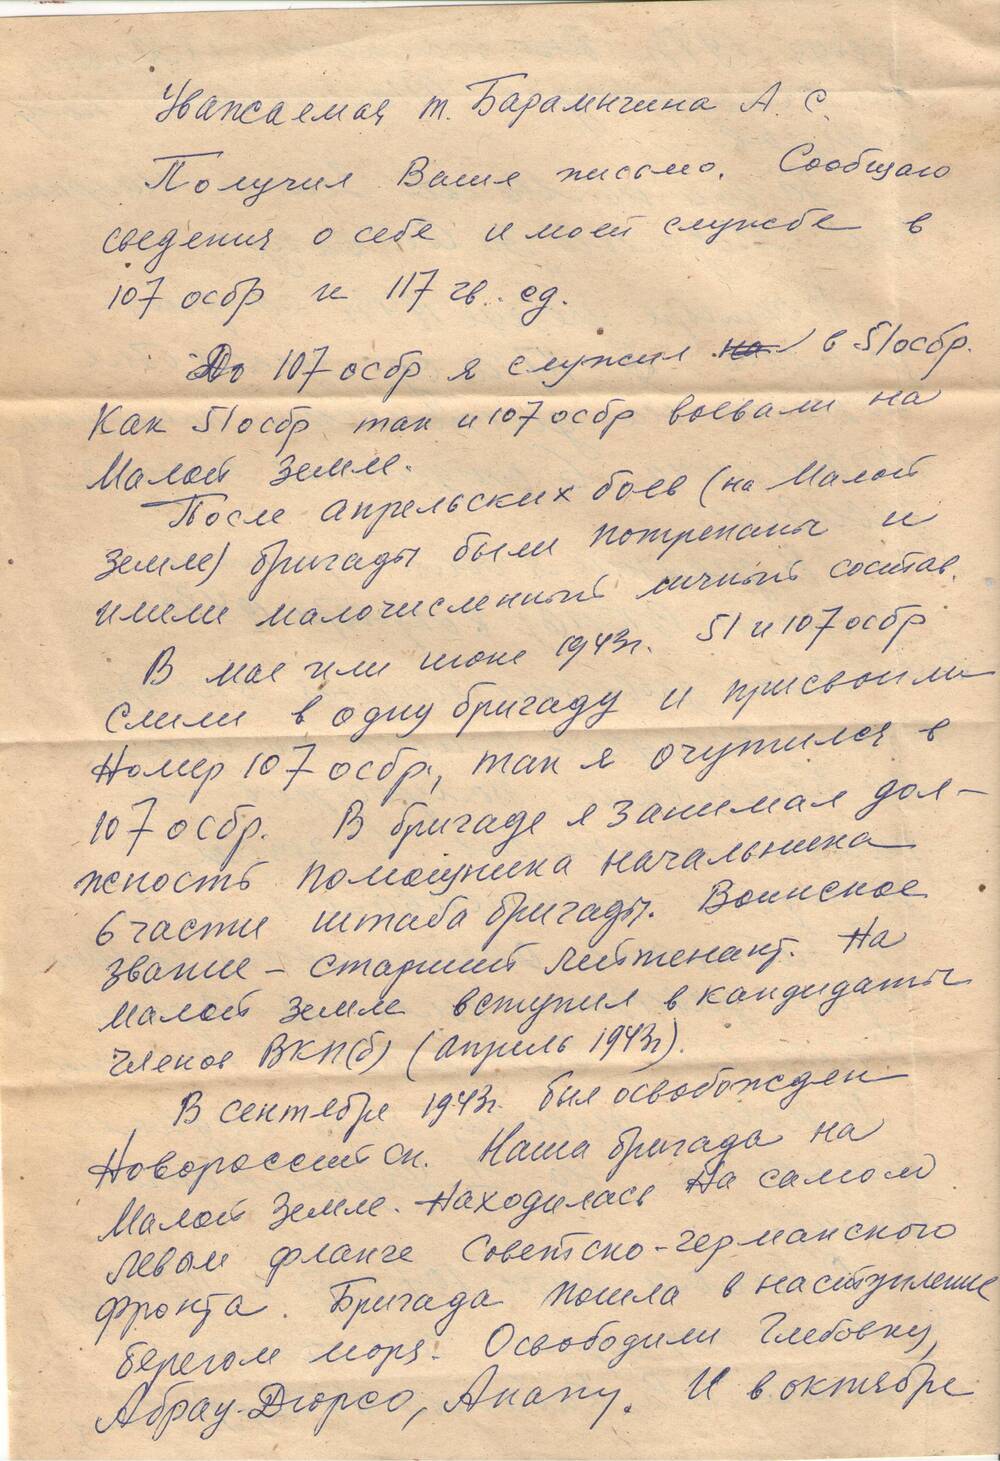 Уважаемая т. Барамычина А. С.
Получил Ваше письмо. Сообщаю
сведения о себе и моей службе в
107 осбр и 117 гв. сд.
До 107 осбр я служил на в 51 осбр.
Как 51 осбр так и 107 осбр воевали на
Малой Земле.
После апрельских боев (на Малой
Земле) бригады были потрепаны и
имели малочисленный личный состав.
В мае или июне 1943 г. 51 и 107 осбр
слили в одну бригаду и присвоили
номер 107 осбр, так я очутился в
107 осбр. В бригаде я занимал дол-
жность помощника начальника
6 части штаба бригады. Воинское
звание – старший лейтенант. На
Малой Земле вступил в кандидаты
членов ВКП(б) (апрель 1943 г).
В сентябре 1943 г. был освобожден
Новороссийск. Наша бригада на
Малой Земле. Находилась на самом
левом фланге Советско-германского
фронта. Бригада пошла в наступление
берегом моря. Освободили Глебовку,
Абрау-Дюрсо, Анапу. И в октябре